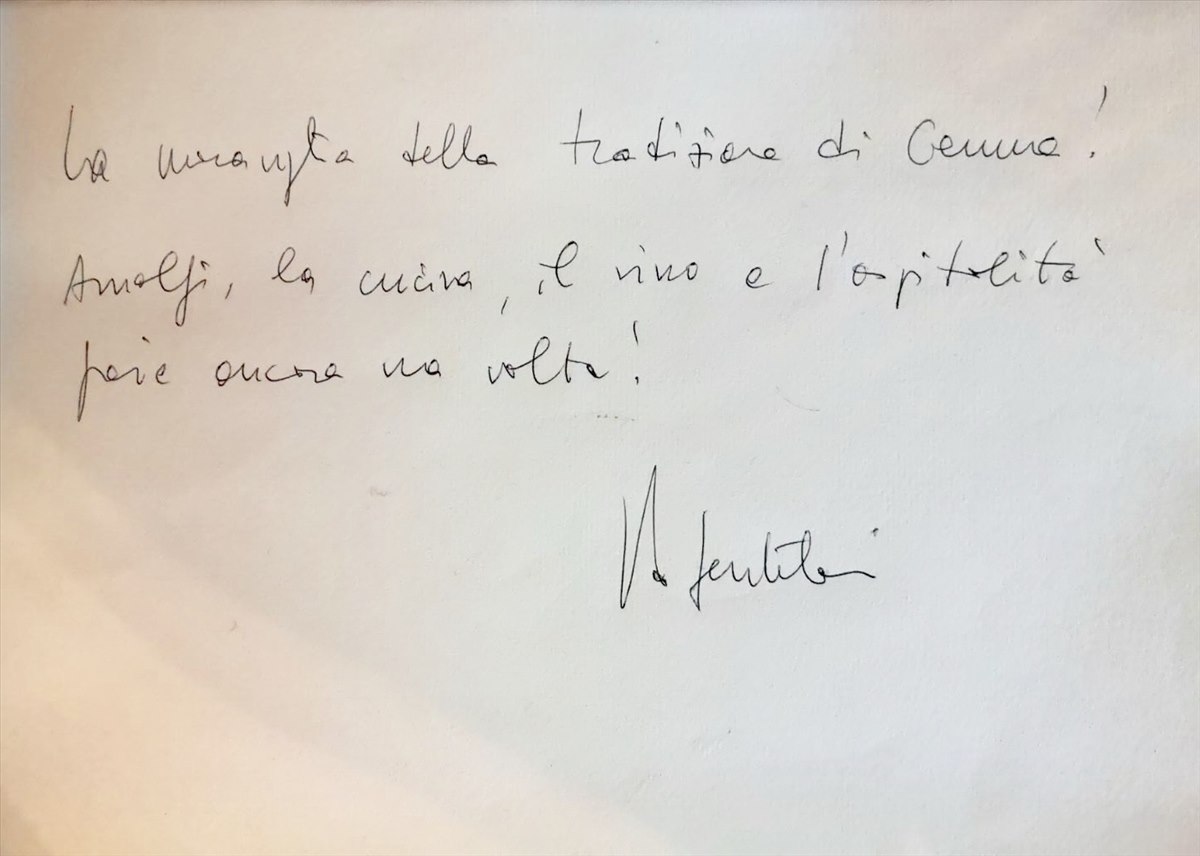 La meraviglia della tradizione di Gemma!
Amalfi, la cucina, il vino e l'ospitalità
ancora una volta!
Gentiloni